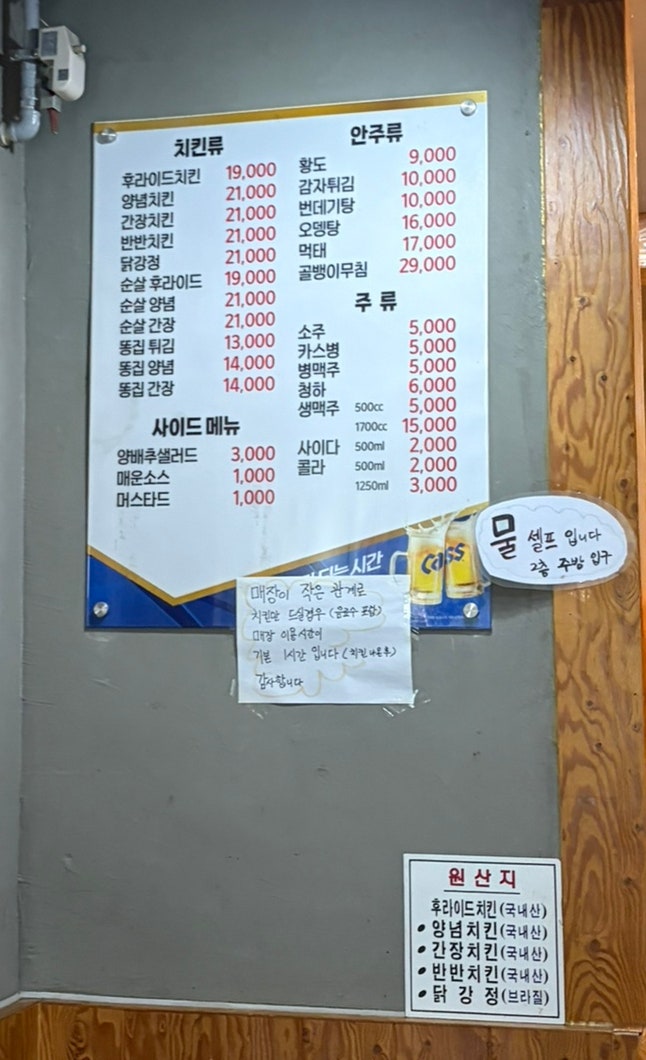 치킨류
후라이드치킨 19,000
양념치킨 21,000
간장치킨 21,000
반반치킨 21,000
닭강정 21,000
순살 후라이드 19,000
순살 양념 21,000
순살 간장 21,000
똥집 튀김 13,000
똥집 양념 14,000
똥집 간장 14,000
사이드 메뉴
양배추샐러드 3,000
매운소스 1,000
머스타드 1,000
안주류
황도 9,000
감자튀김 10,000
번데기탕 10,000
오뎅탕 16,000
먹태 17,000
골뱅이무침 29,000
주 류
소주 5,000
카스병 5,000
병맥주 5,000
청하 6,000
생맥주 500cc 5,000
1700cc 15,000
사이다 500ml 2,000
콜라 500ml 2,000
1250ml 3,000
되는 시간
Cass
물 셀프 입니다
2층 주방 입구
매장이 작은 관계로
치킨만 드실경우 (음료수 포함)
매장 이용시간이
기본 1시간 입니다 (치킨 나온후)
감사합니다
원산지
후라이드치킨(국내산)
• 양념치킨(국내산)
• 간장치킨(국내산)
• 반반치킨(국내산)
• 닭 강 정(브라질)